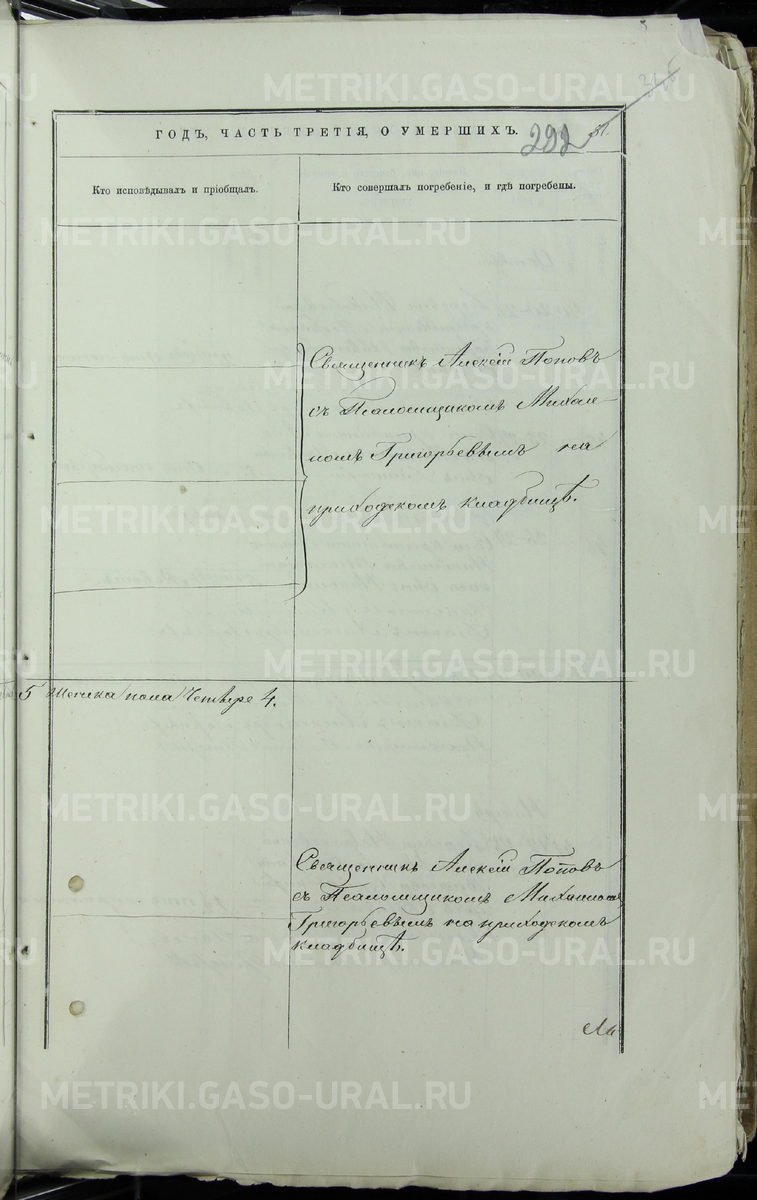 ГОДЪ, ЧАСТЬ ТРЕТІЯ, О УМЕРШИХЪ.
292
Кто исповѣдывалъ и пріобщалъ.
Кто совершалъ погребеніе, и гдѣ погребены.
Священникъ Алексій Поповъ
съ Псаломщикомъ Михаи-
ломъ Григорьевымъ на
приходскомъ кладбищѣ.
5 Женска пола Четыре 4.
Священникъ Алексій Поповъ
съ Псаломщикомъ Михаиломъ
Григорьевымъ на приходскомъ
кладбищѣ.
METRIKI.GASO-URAL.RU